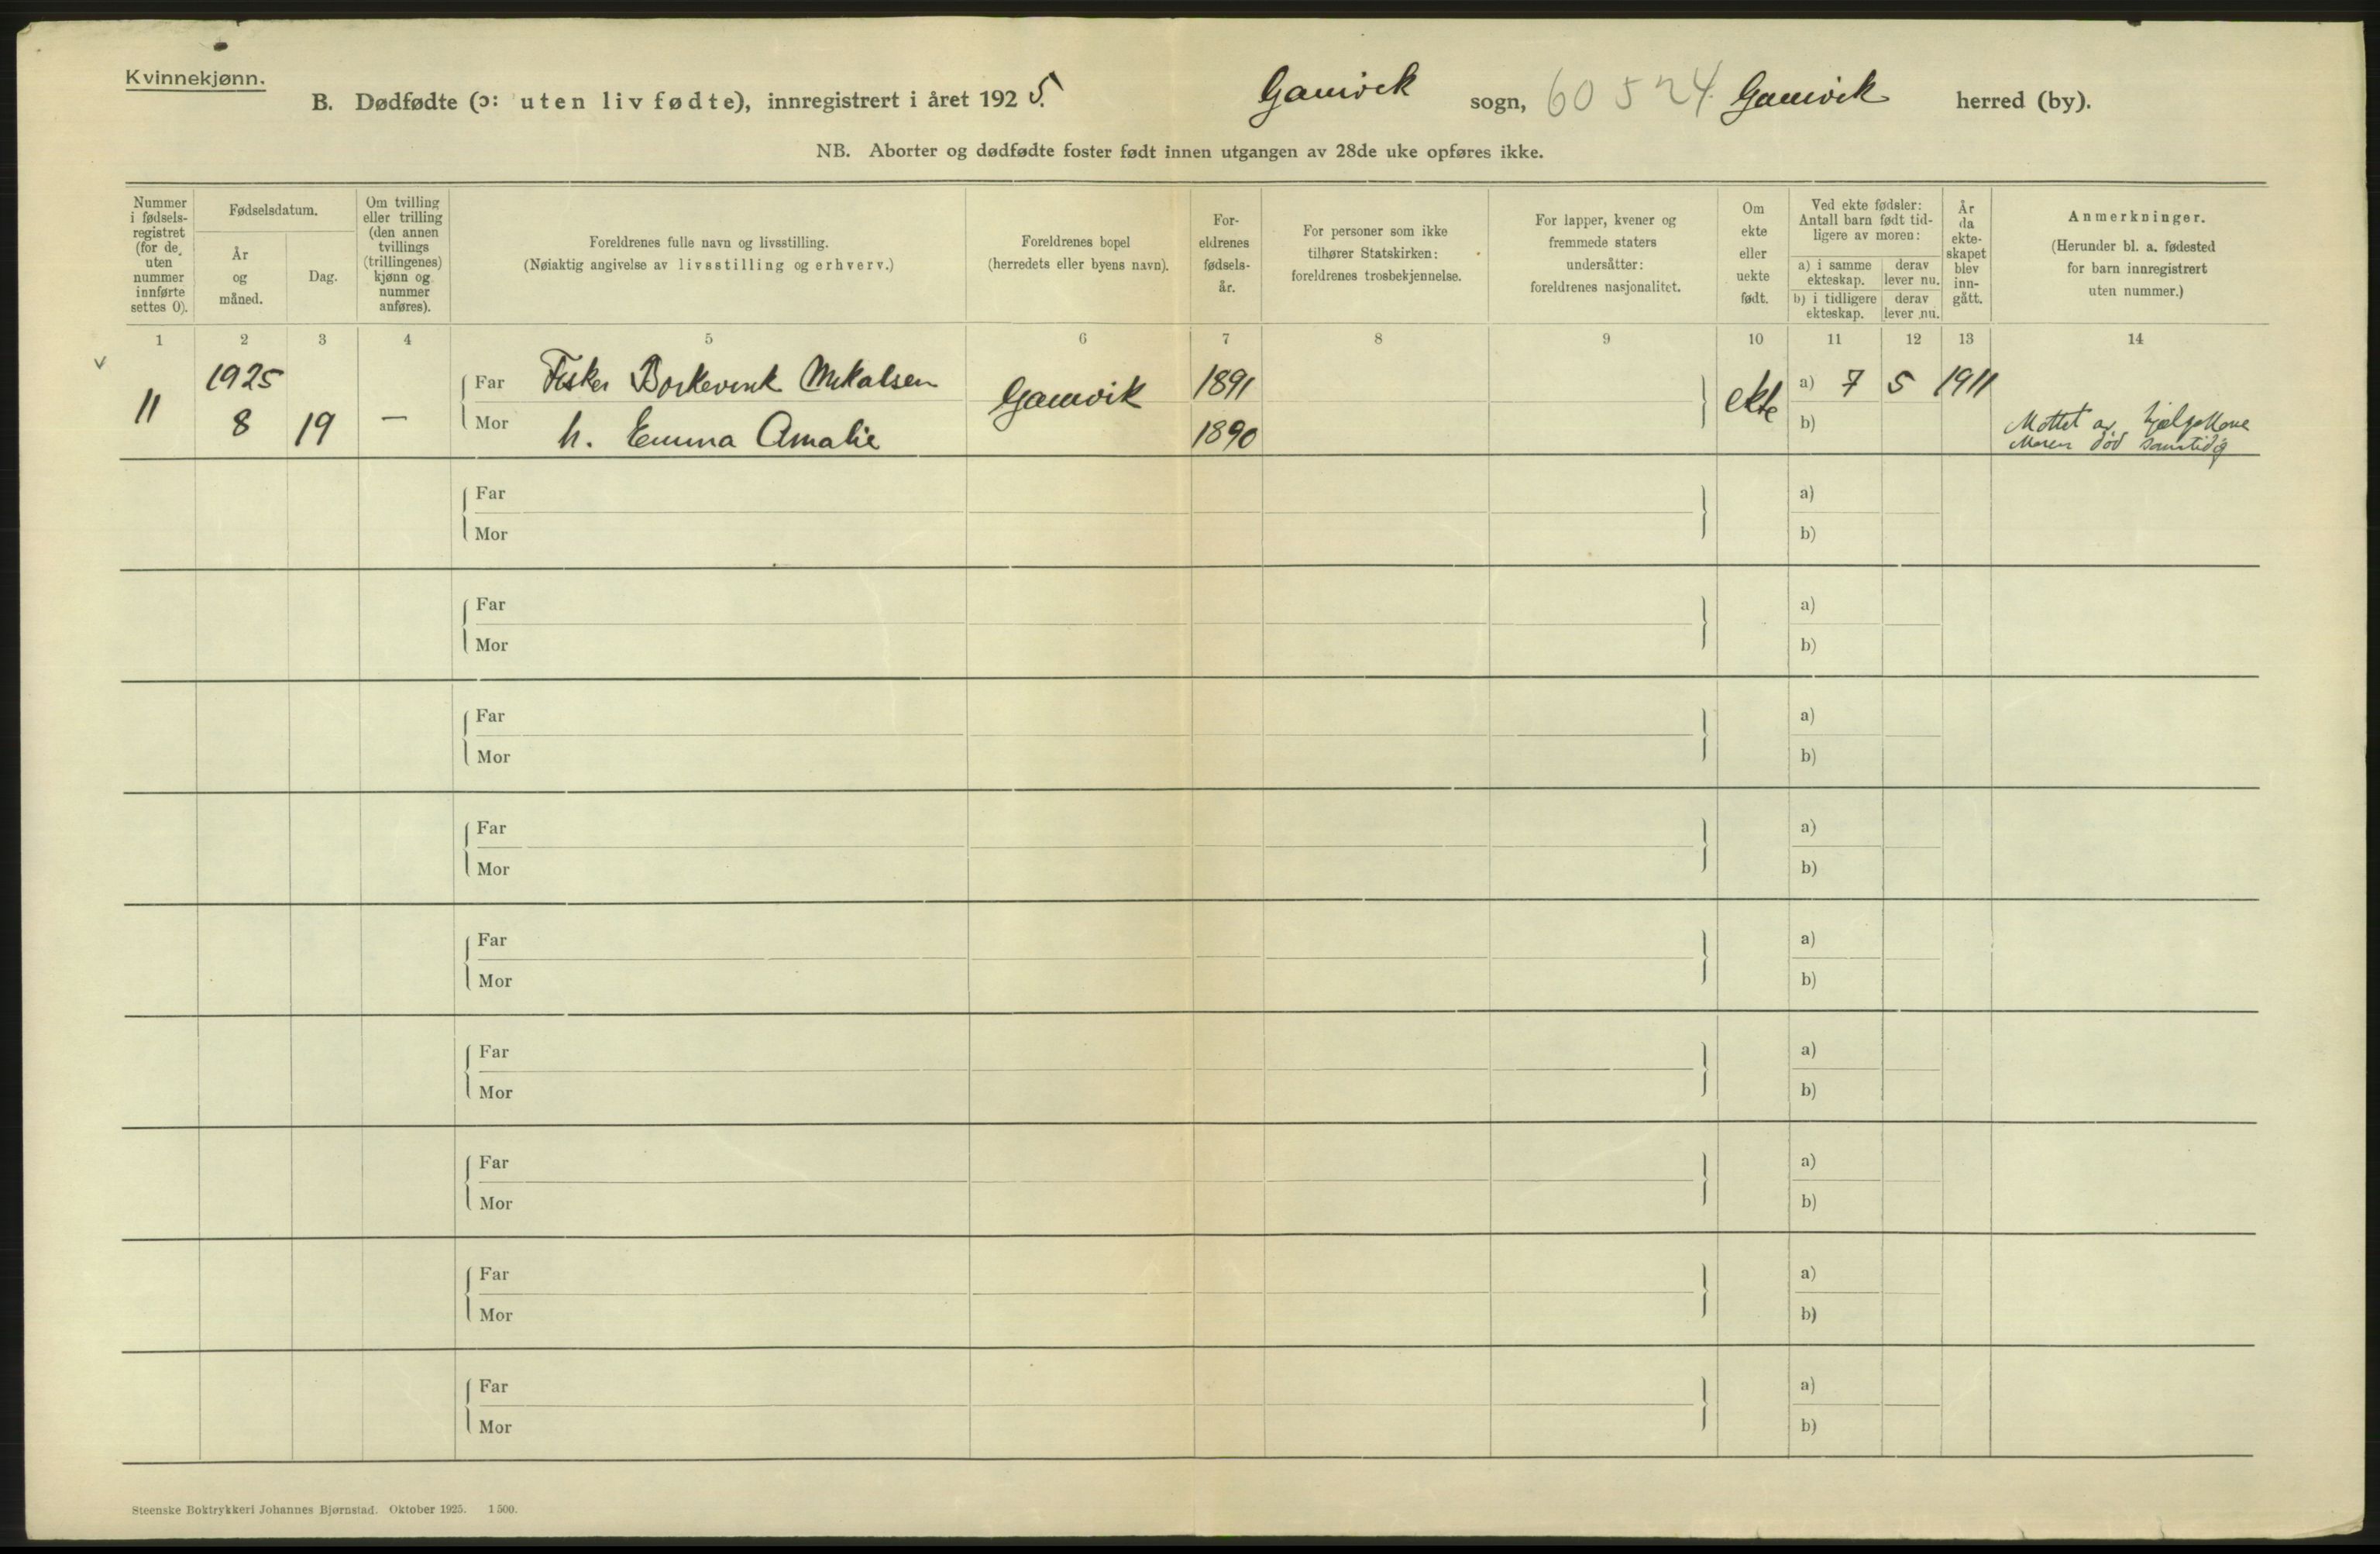 Kvinnekjønn.
B. Dødfødte (ɔ: uten liv fødte), innregistrert i året 1925. Gamvik sogn, 60524 Gamvik herred (by).
NB. Aborter og dødfødte foster født innen utgangen av 28de uke opføres ikke.
Nummer i fødsels-registret (for de uten nummer innførte settes 0).
Fødselsdatum.
År og måned.
Dag.
Om tvilling eller trilling (den annen tvillings (trillingenes) kjønn og nummer anføres).
Foreldrenes fulle navn og livsstilling.
(Nøiaktig angivelse av livsstilling og erhverv.)
Foreldrenes bopel
(herredets eller byens navn).
For-eldrenes fødsels-år.
For personer som ikke tilhører Statskirken: foreldrenes trosbekjennelse.
For lapper, kvener og fremmede staters undersåtter: foreldrenes nasjonalitet.
Om ekte eller uekte født.
Ved ekte fødsler: Antall barn født tid-ligere av moren:
a) i samme ekteskap.
derav lever nu.
b) i tidligere ekteskap.
derav lever nu.
År da ekte-skapet blev inn-gått.
Anmerkninger.
(Herunder bl. a. fødested for barn innregistrert uten nummer.)
1 2 3 4 5 6 7 8 9 10 11 12 13 14
v
11
1925
8 19 —
Far Fisker Mikalsen
Mor h. Emma Amalie
Gamvik
1891
1890
ekte
a) 7 5 1911
b)
Mottet av hjelpekone
Moren død samtidig
Far a)
Mor b)
Far a)
Mor b)
Far a)
Mor b)
Far a)
Mor b)
Far a)
Mor b)
Far a)
Mor b)
Far a)
Mor b)
Far a)
Mor b)
Far a)
Mor b)
Steenske Boktrykkeri Johannes Bjørnstad. Oktober 1925. 1500.